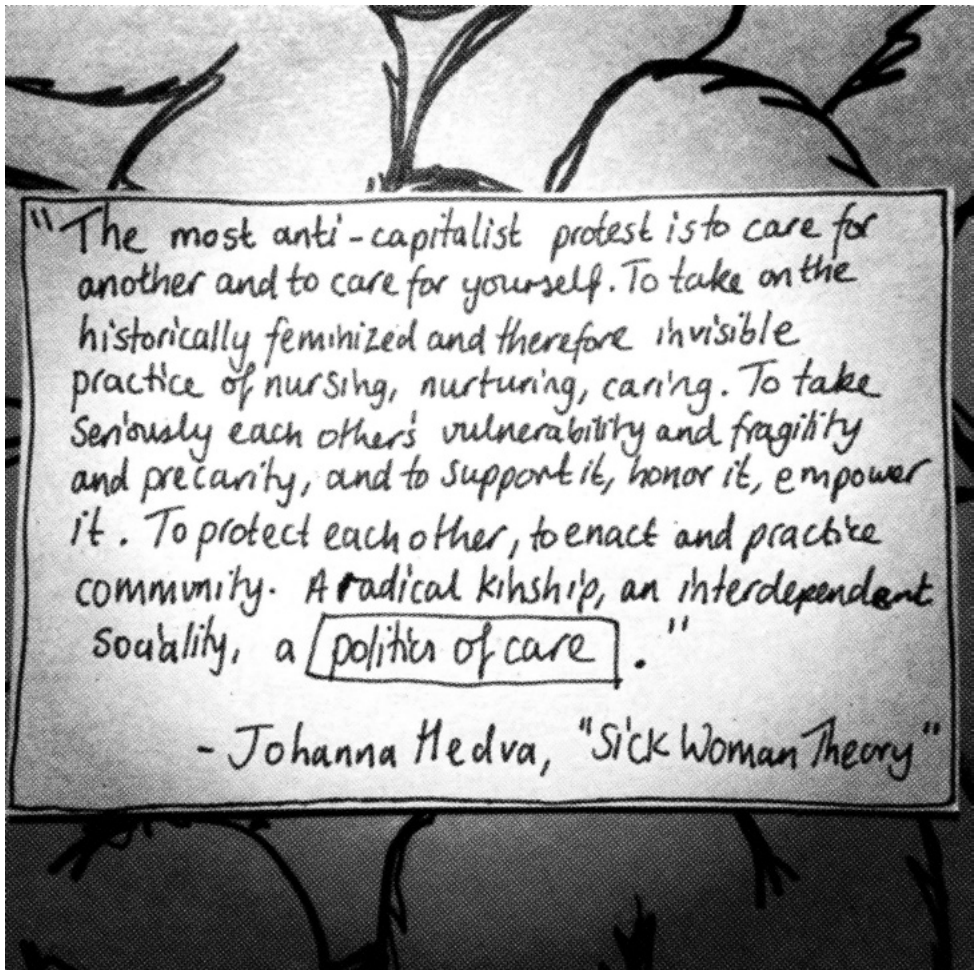 "The most anti-capitalist protest is to care for
another and to care for yourself. To take on the
historically feminized and therefore invisible
practice of nursing, nurturing, caring. To take
seriously each other's vulnerability and fragility
and precarity, and to support it, honor it, empower
it. To protect each other, to enact and practice
community. A radical kinship, an interdependent
sociality, a politics of care."
- Johanna Hedva, "Sick Woman Theory"